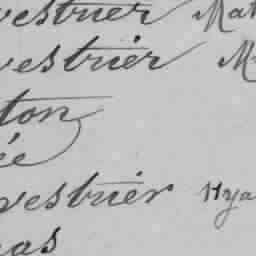 vestrier Mat
vestrier M
ton
ée
vestrier Hya
as